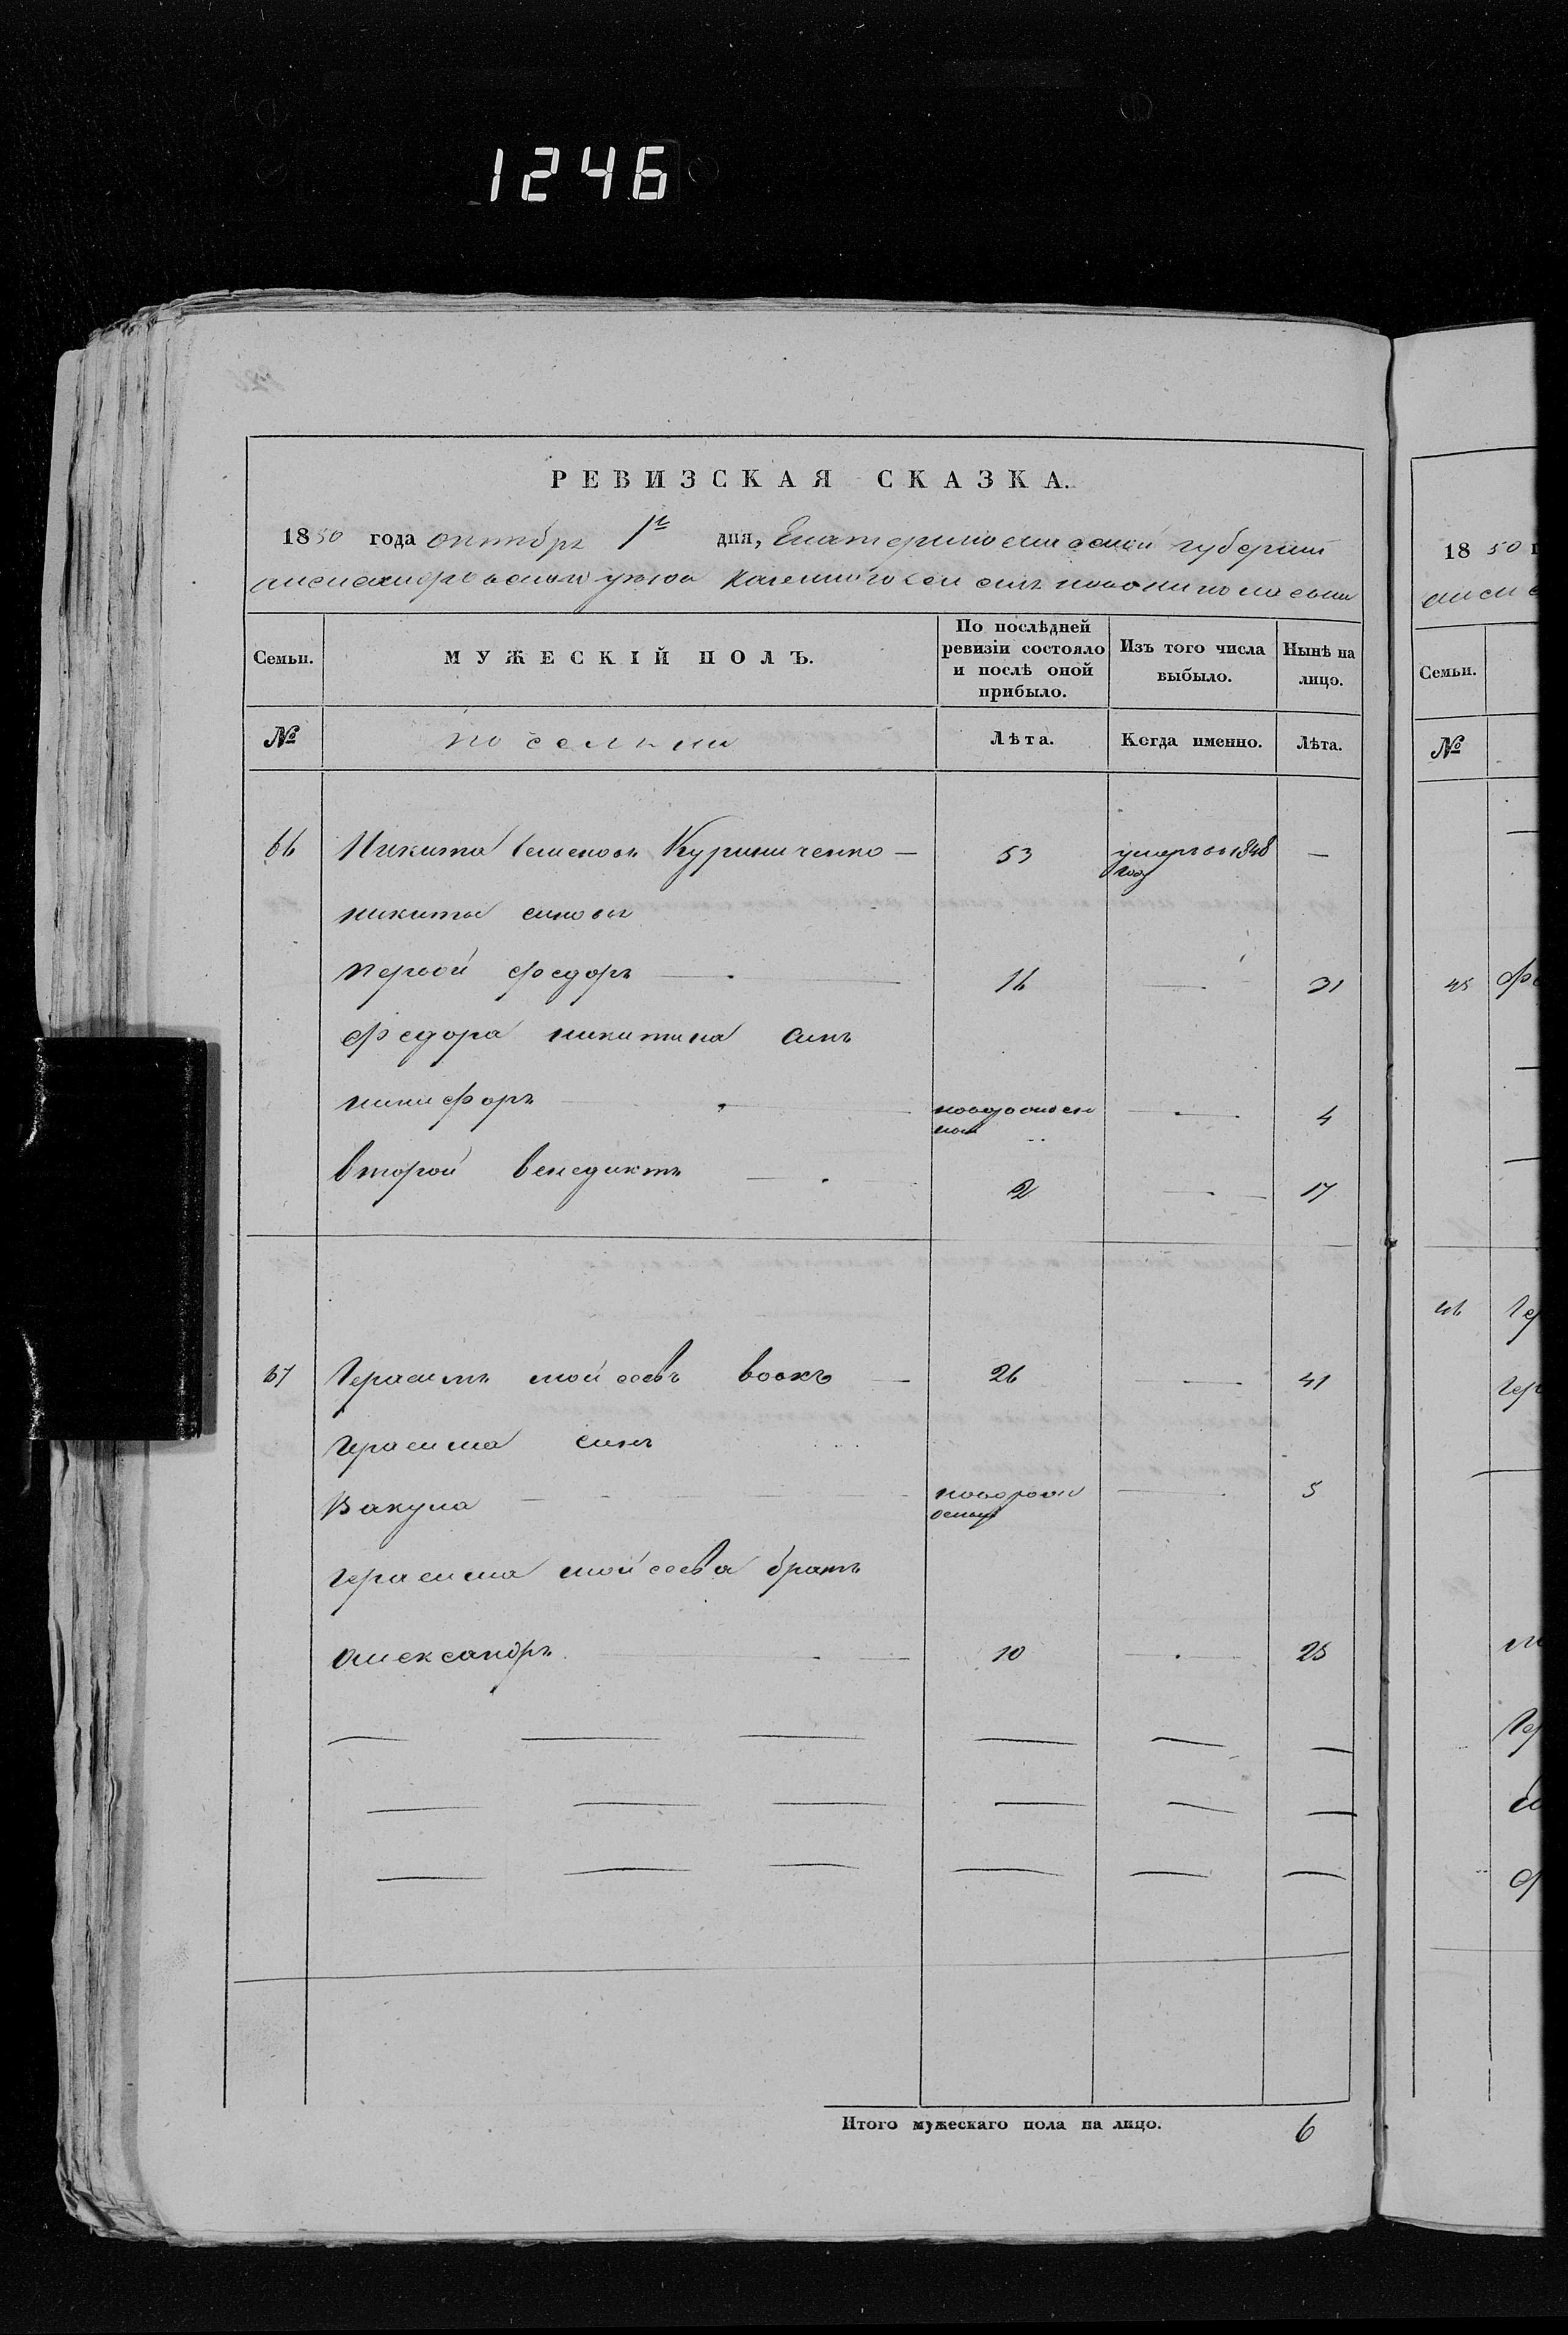 1246
РЕВИЗСКАЯ СКАЗКА.
1850 года октябр 1го дня, Екатеринославской губернии
александровского уезда казенного селения новониколаевки
Семьи. МУЖЕСКІЙ ПОЛЪ. По послѣдней ревизіи состояло и послѣ оной прибыло. Изъ того числа выбыло. Нынѣ на лицо.
№ Лѣта. Когда именно. Лѣта.
66 Никита Семеновъ Куриниченко — 53 умеръ в 1848 году —
никиты сыновья
первой федоръ — 16 — 31
федора никитина сынъ
никифоръ — новорожденной — 4
второй венедиктъ — 2 — 17
67 Герасимъ мойсеевъ вовкъ — 26 — 41
герасима сынъ
Вакула — новорожденный — 5
герасима мойсеева братъ
александръ — 10 — 25
Итого мужескаго пола на лицо. 6
18 50
Семьи.
№
45
46